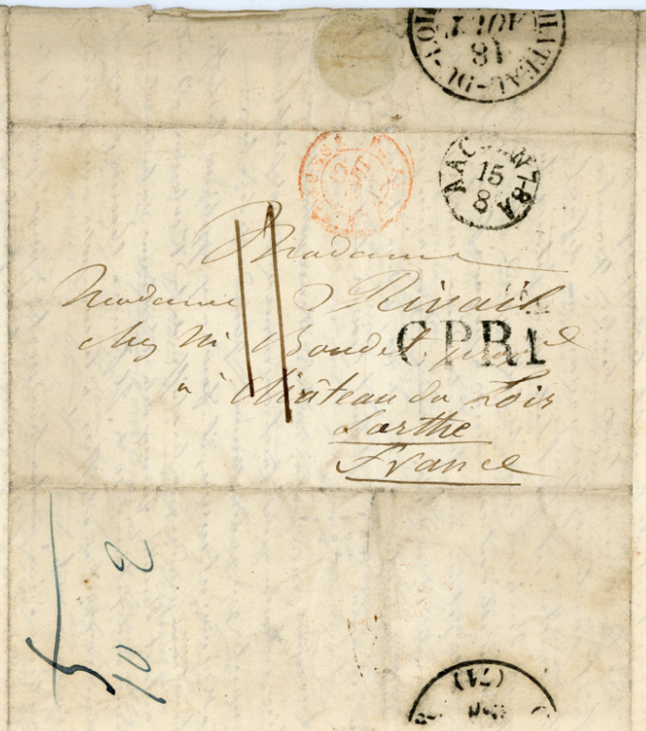 CHATEAU-DU-LOIR
18
AOUT
AACHEN 7-8A
15
8
11
Madame
Madame Rivail
chez Mr Boudet
CPR1
à Château du Loir
Sarthe
France
5
10 2
(71)